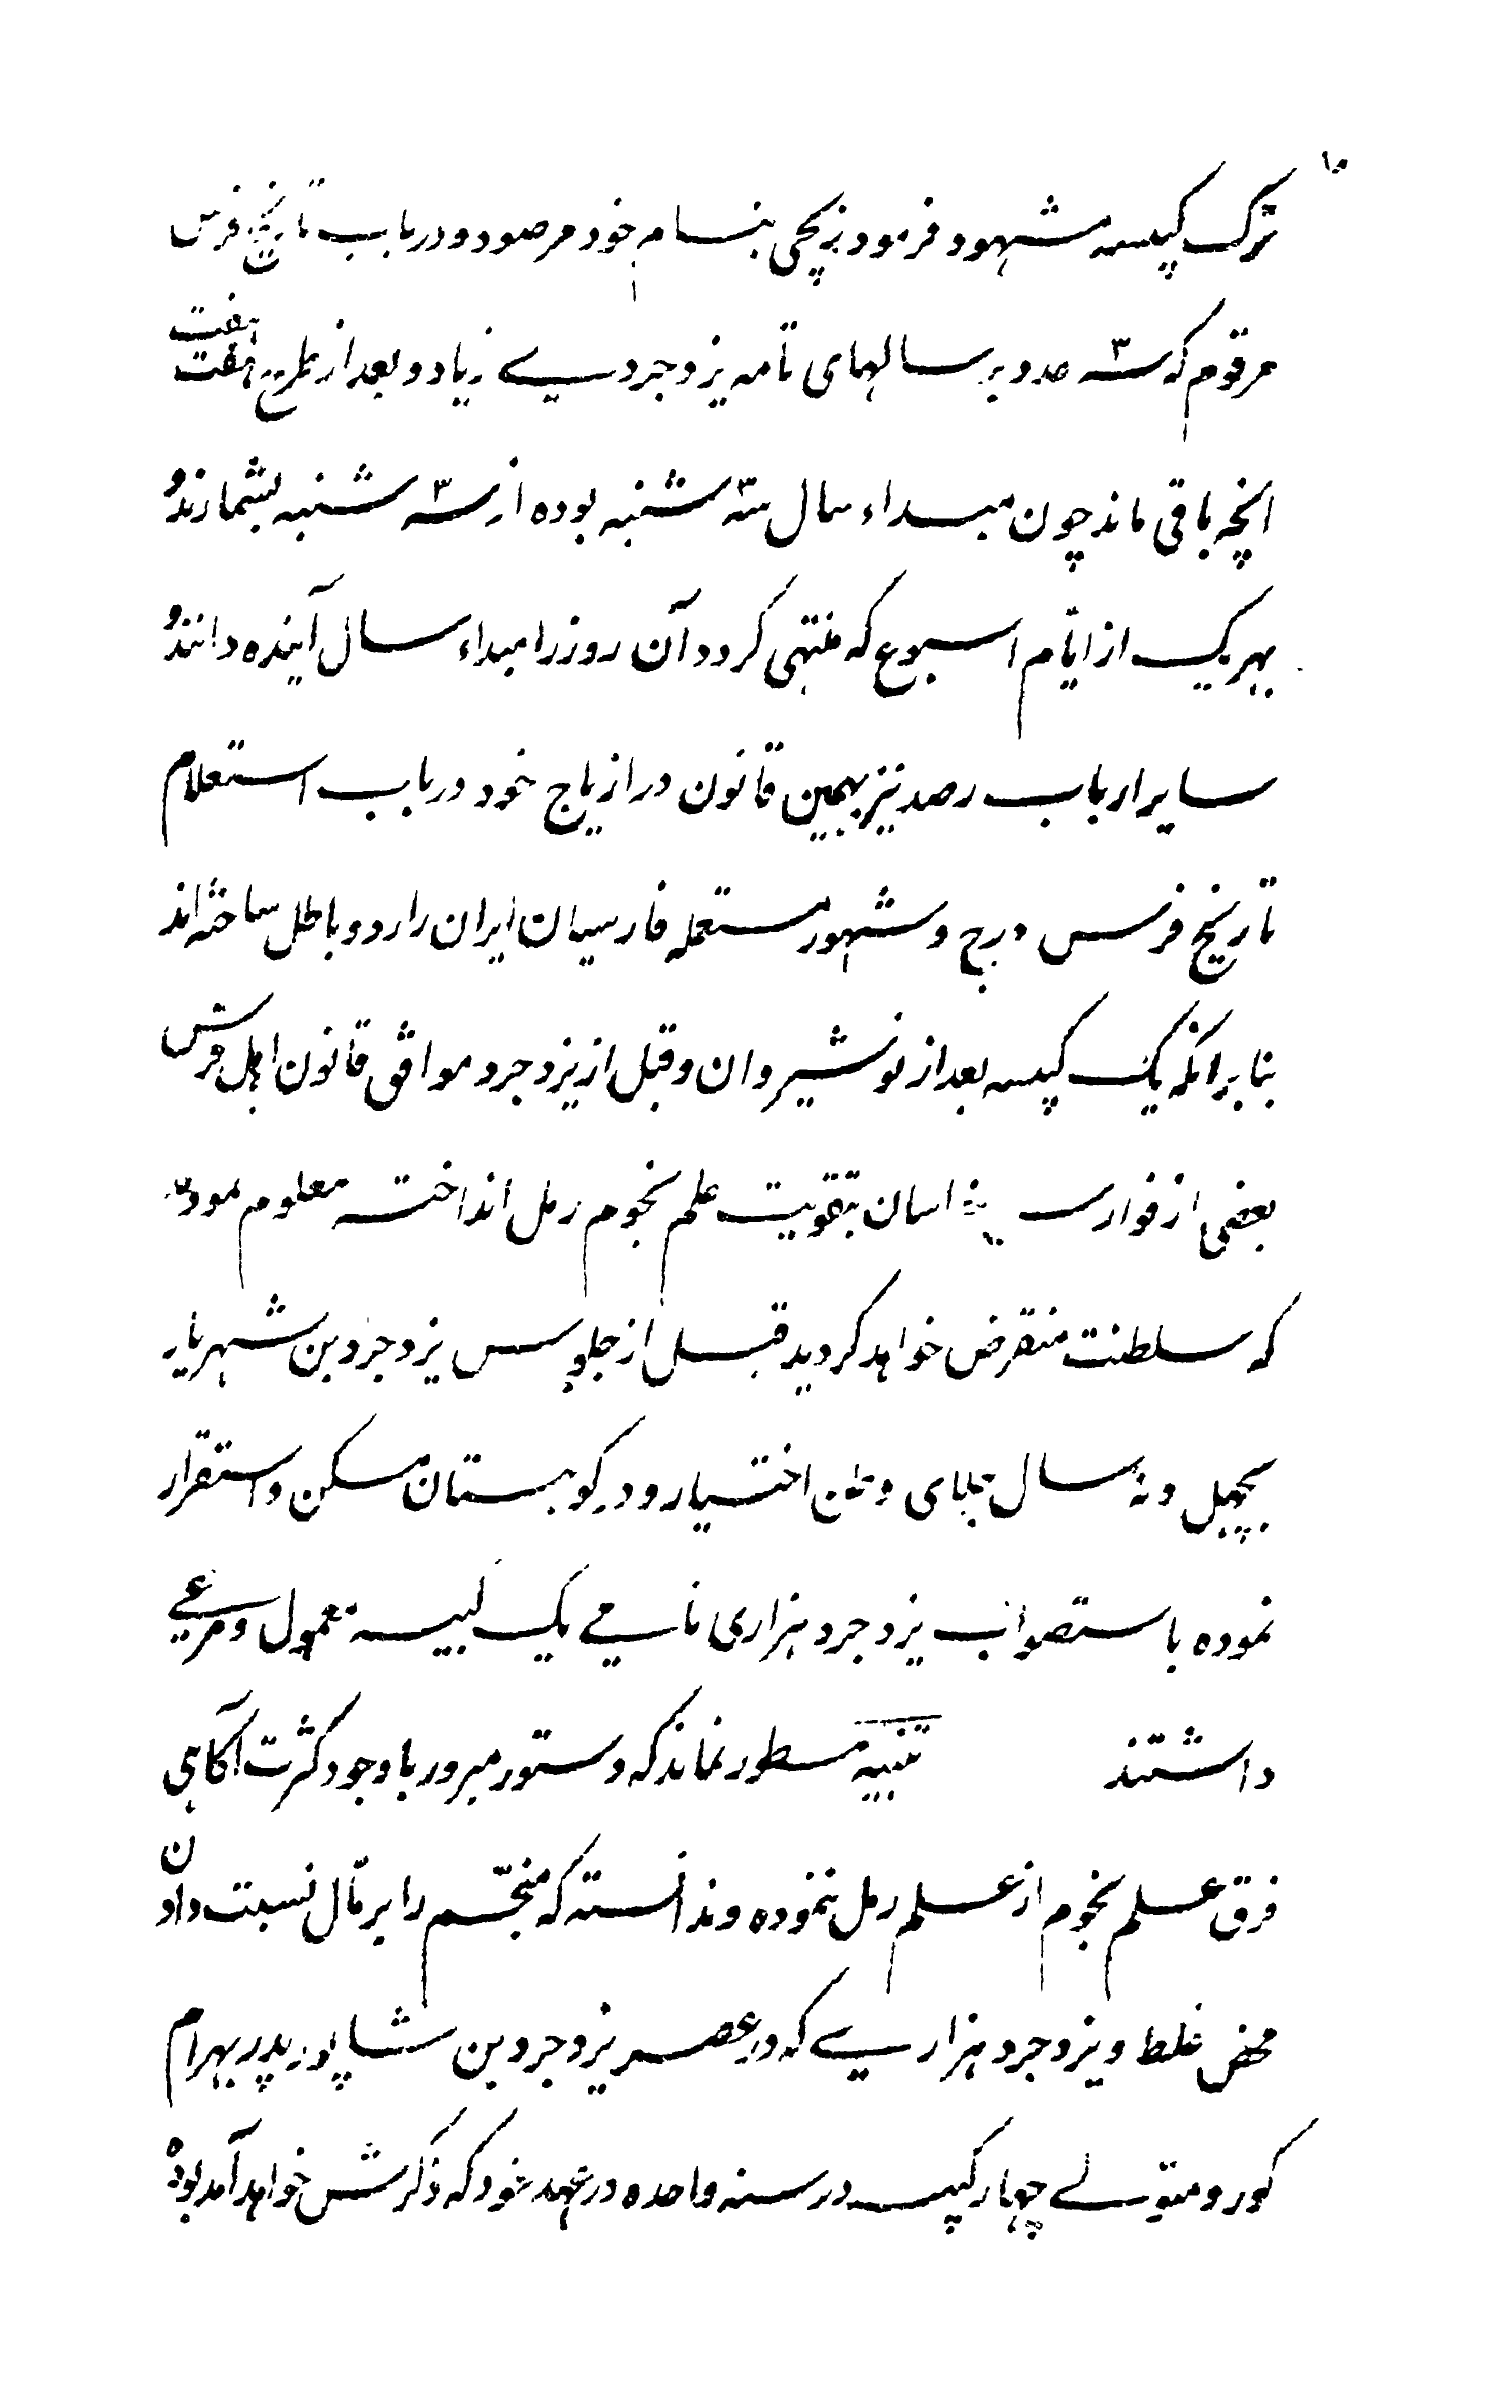 ۱۵
ترک کبیسه مشهود فرمود زیجی بنام خود مرصود و در باب تاریخ فرس
مرقوم که سه عدد بر سالهای تامه یزدجردی زیاد و بعد از طرح هفت هفت
انچه باقی ماند چون مبداء سال سه شنبه بوده از سه شنبه بشمارند و
بهر یک از ایّام اسبوع که منتهی کردد آن روز را مبداء سال آینده دانند و
سایر ارباب رصد نیز بهمین قانون در ازیاج خود در باب استعلام
تاریخ فرس درج و شهور مستعمله فارسیان ایران را رد و باطل ساخته اند
بنا بر انکه یک کبیسه بعد از نوشیروان و قبل از یزدجرد موافق قانون اهل فرس
بعضی از فوارس اسان بتقویت علم نجوم رمل انداخته معلوم نمود
که سلطنت منقرض خواهد کردید قبل از جلوس یزدجرد بن شهریار
بچهل و نه سال جلای وطن اختیار و در کوهستان مسکن و استقرار
نموده باستصواب یزدجرد هزاری نامی یک کبیسه معمول و مرعی
داشتند تنبیه مسطور نماند که دستور مبرور با وجود کثرت آکاهی
فرق علم نجوم از علم رمل ننموده و ندانسته که منجّم را برمّال نسبت دادن
محض غلط و یزدجرد هزاری که در عصر یزدجرد بن شاپور پدر بهرام
کور و متولی چهار کبیسه در سنه واحده در عهد خود که ذکرش خواهد آمد بوده